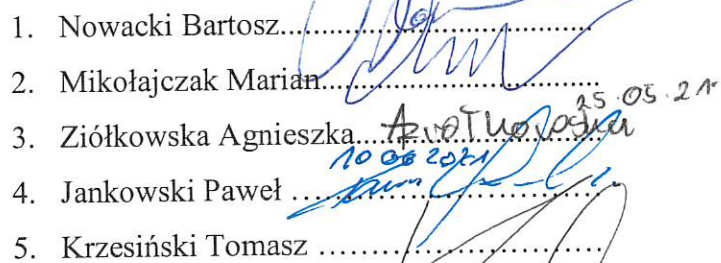 1. Nowacki Bartosz..........................................
2. Mikołajczak Marian.....................................
25.05.21
3. Ziółkowska Agnieszka.................................
10 06 2021
4. Jankowski Paweł ........................................
5. Krzesiński Tomasz .....................................